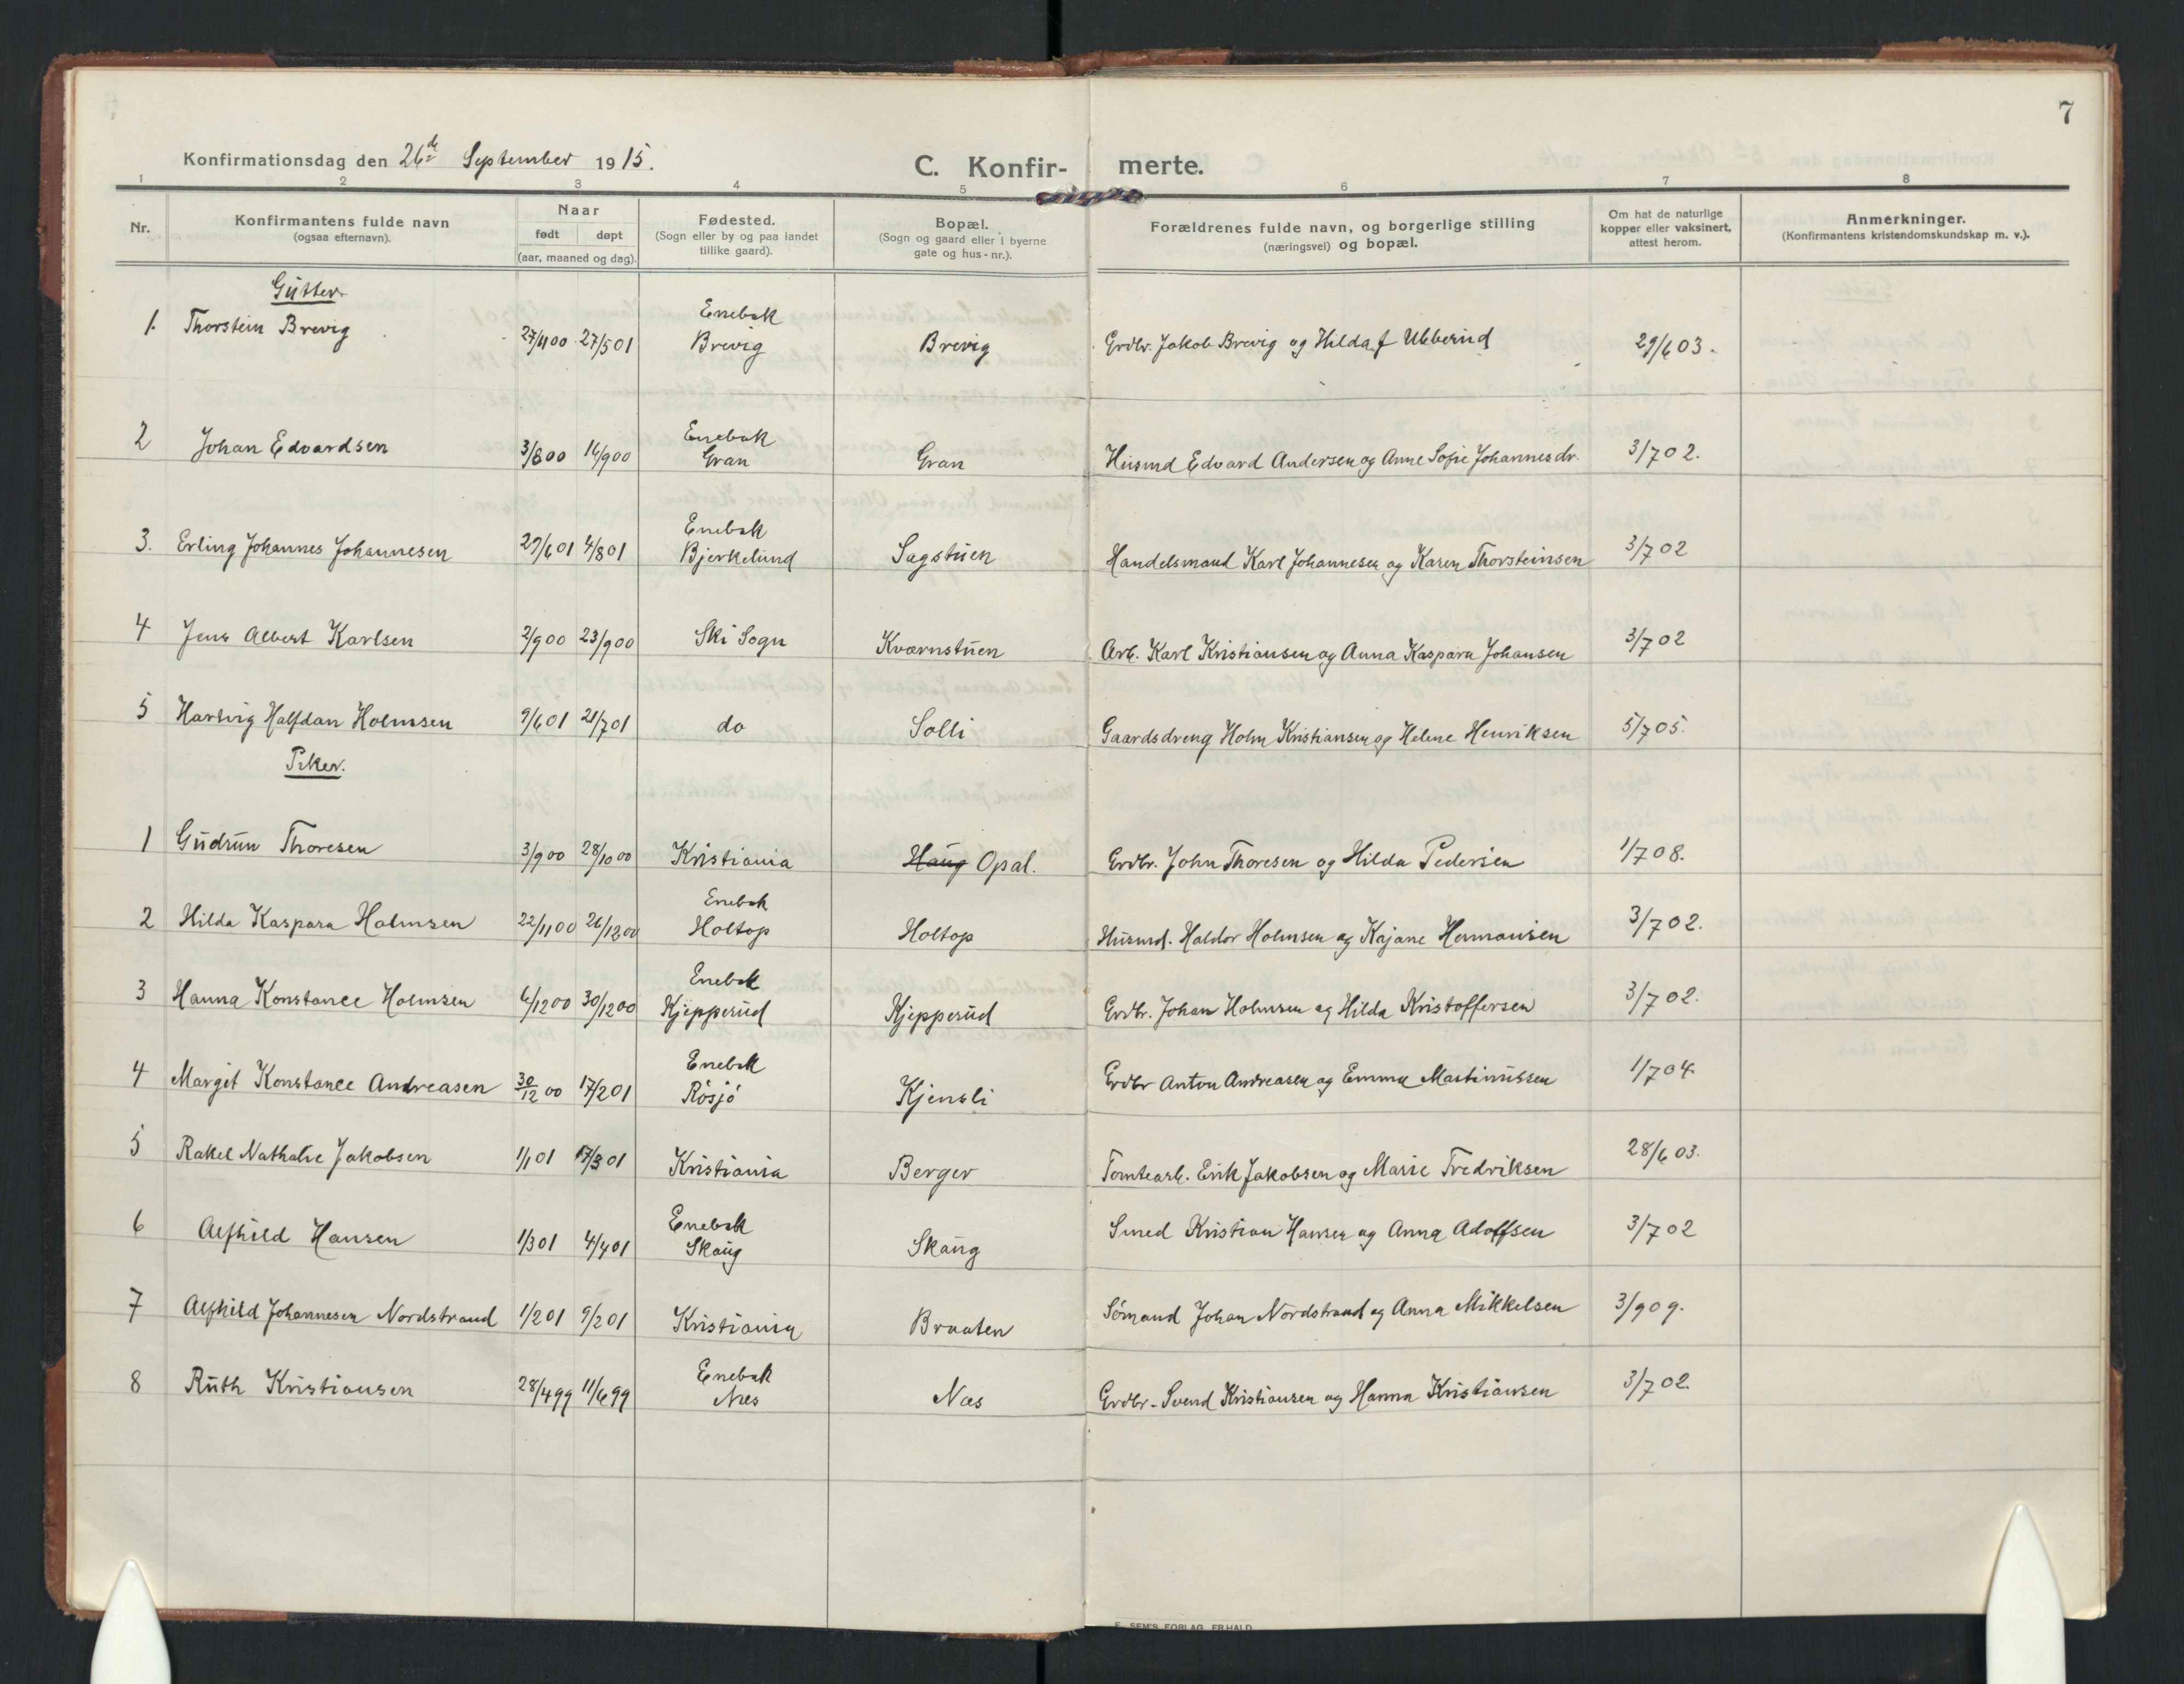 7
Konfirmationsdag den 26de September 1915.
C. Konfir- merte.
1 2 3 4 5 6 7 8
Nr. | Konfirmantens fulde navn (ogsaa efternavn). | Naar født døpt (aar, maaned og dag). | Fødested. (Sogn eller by og paa landet tillike gaard). | Bopæl. (Sogn og gaard eller i byerne gate og hus-nr.). | Forældrenes fulde navn, og borgerlige stilling (næringsvei) og bopæl. | Om hat de naturlige kopper eller vaksinert, attest herom. | Anmerkninger. (Konfirmantens kristendomskundskap m. v.).
Gutter
1. Thorstein Brevig 27/11 00 27/5 01 Enebak Brevig Brevig Grdbr. Jakob Brevig og Hilda f Ubberud 29/6 03.
2 Johan Edvardsen 3/8 00 16/9 00 Enebak Gran Gran Husmd Edvard Andersen og Anne Sofie Johannesdr. 3/7 02.
3. Erling Johannes Johannesen 29/6 01 4/8 01 Enebak Bjerkelund Sagstuen Handelsmand Karl Johannesen og Karen Thorsteinsen 3/7 02
4 Jens Albert Karlsen 2/9 00 23/9 00 Ski Sogn Kværnstuen Arb. Karl Kristiansen og Anna Kaspara Johansen 3/7 02
5 Hartvig Halfdan Holmsen 9/6 01 21/7 01 do Solli Gaardsdreng Holm Kristiansen og Helene Henriksen 5/7 05.
Piker.
1 Gudrun Thoresen 3/9 00 28/10 00 Kristiania Haug Opal. Grdbr. John Thoresen og Hilda Pedersen 1/7 08.
2 Hilda Kaspara Holmsen 22/11 00 26/12 00 Enebak Holtop Holtop Husmd. Haldor Holmsen og Kajane Hermansen 3/7 02.
3 Hanna Konstance Holmsen 6/12 00 30/12 00 Enebak Kjepperud Kjepperud Grdbr. Johan Holmsen og Hilda Kristoffersen 3/7 02.
4 Margit Konstance Andreasen 30/12 00 17/2 01 Enebak Rösjö Kjensli Grdbr Anton Andreasen og Emma Martinussen 1/7 04.
5 Rakel Nathalie Jakobsen 1/1 01 17/3 01 Kristiania Berger Tomtearb. Erik Jakobsen og Marie Fredriksen 28/6 03.
6 Alfhild Hansen 1/3 01 4/4 01 Enebak Skaug Skaug Smed Kristian Hansen og Anna Adolfsen 3/7 02
7 Alfhild Johannesen Nordstrand 1/2 01 9/2 01 Kristiania Braaten Sömand Johan Nordstrand og Anna Mikkelsen 3/9 09.
8 Ruth Kristiansen 28/4 99 11/6 99 Enebak Næs Næs Grdbr. Svend Kristiansen og Hanna Kristiansen 3/7 02.
E. SEM'S FORLAG, FR.HALD